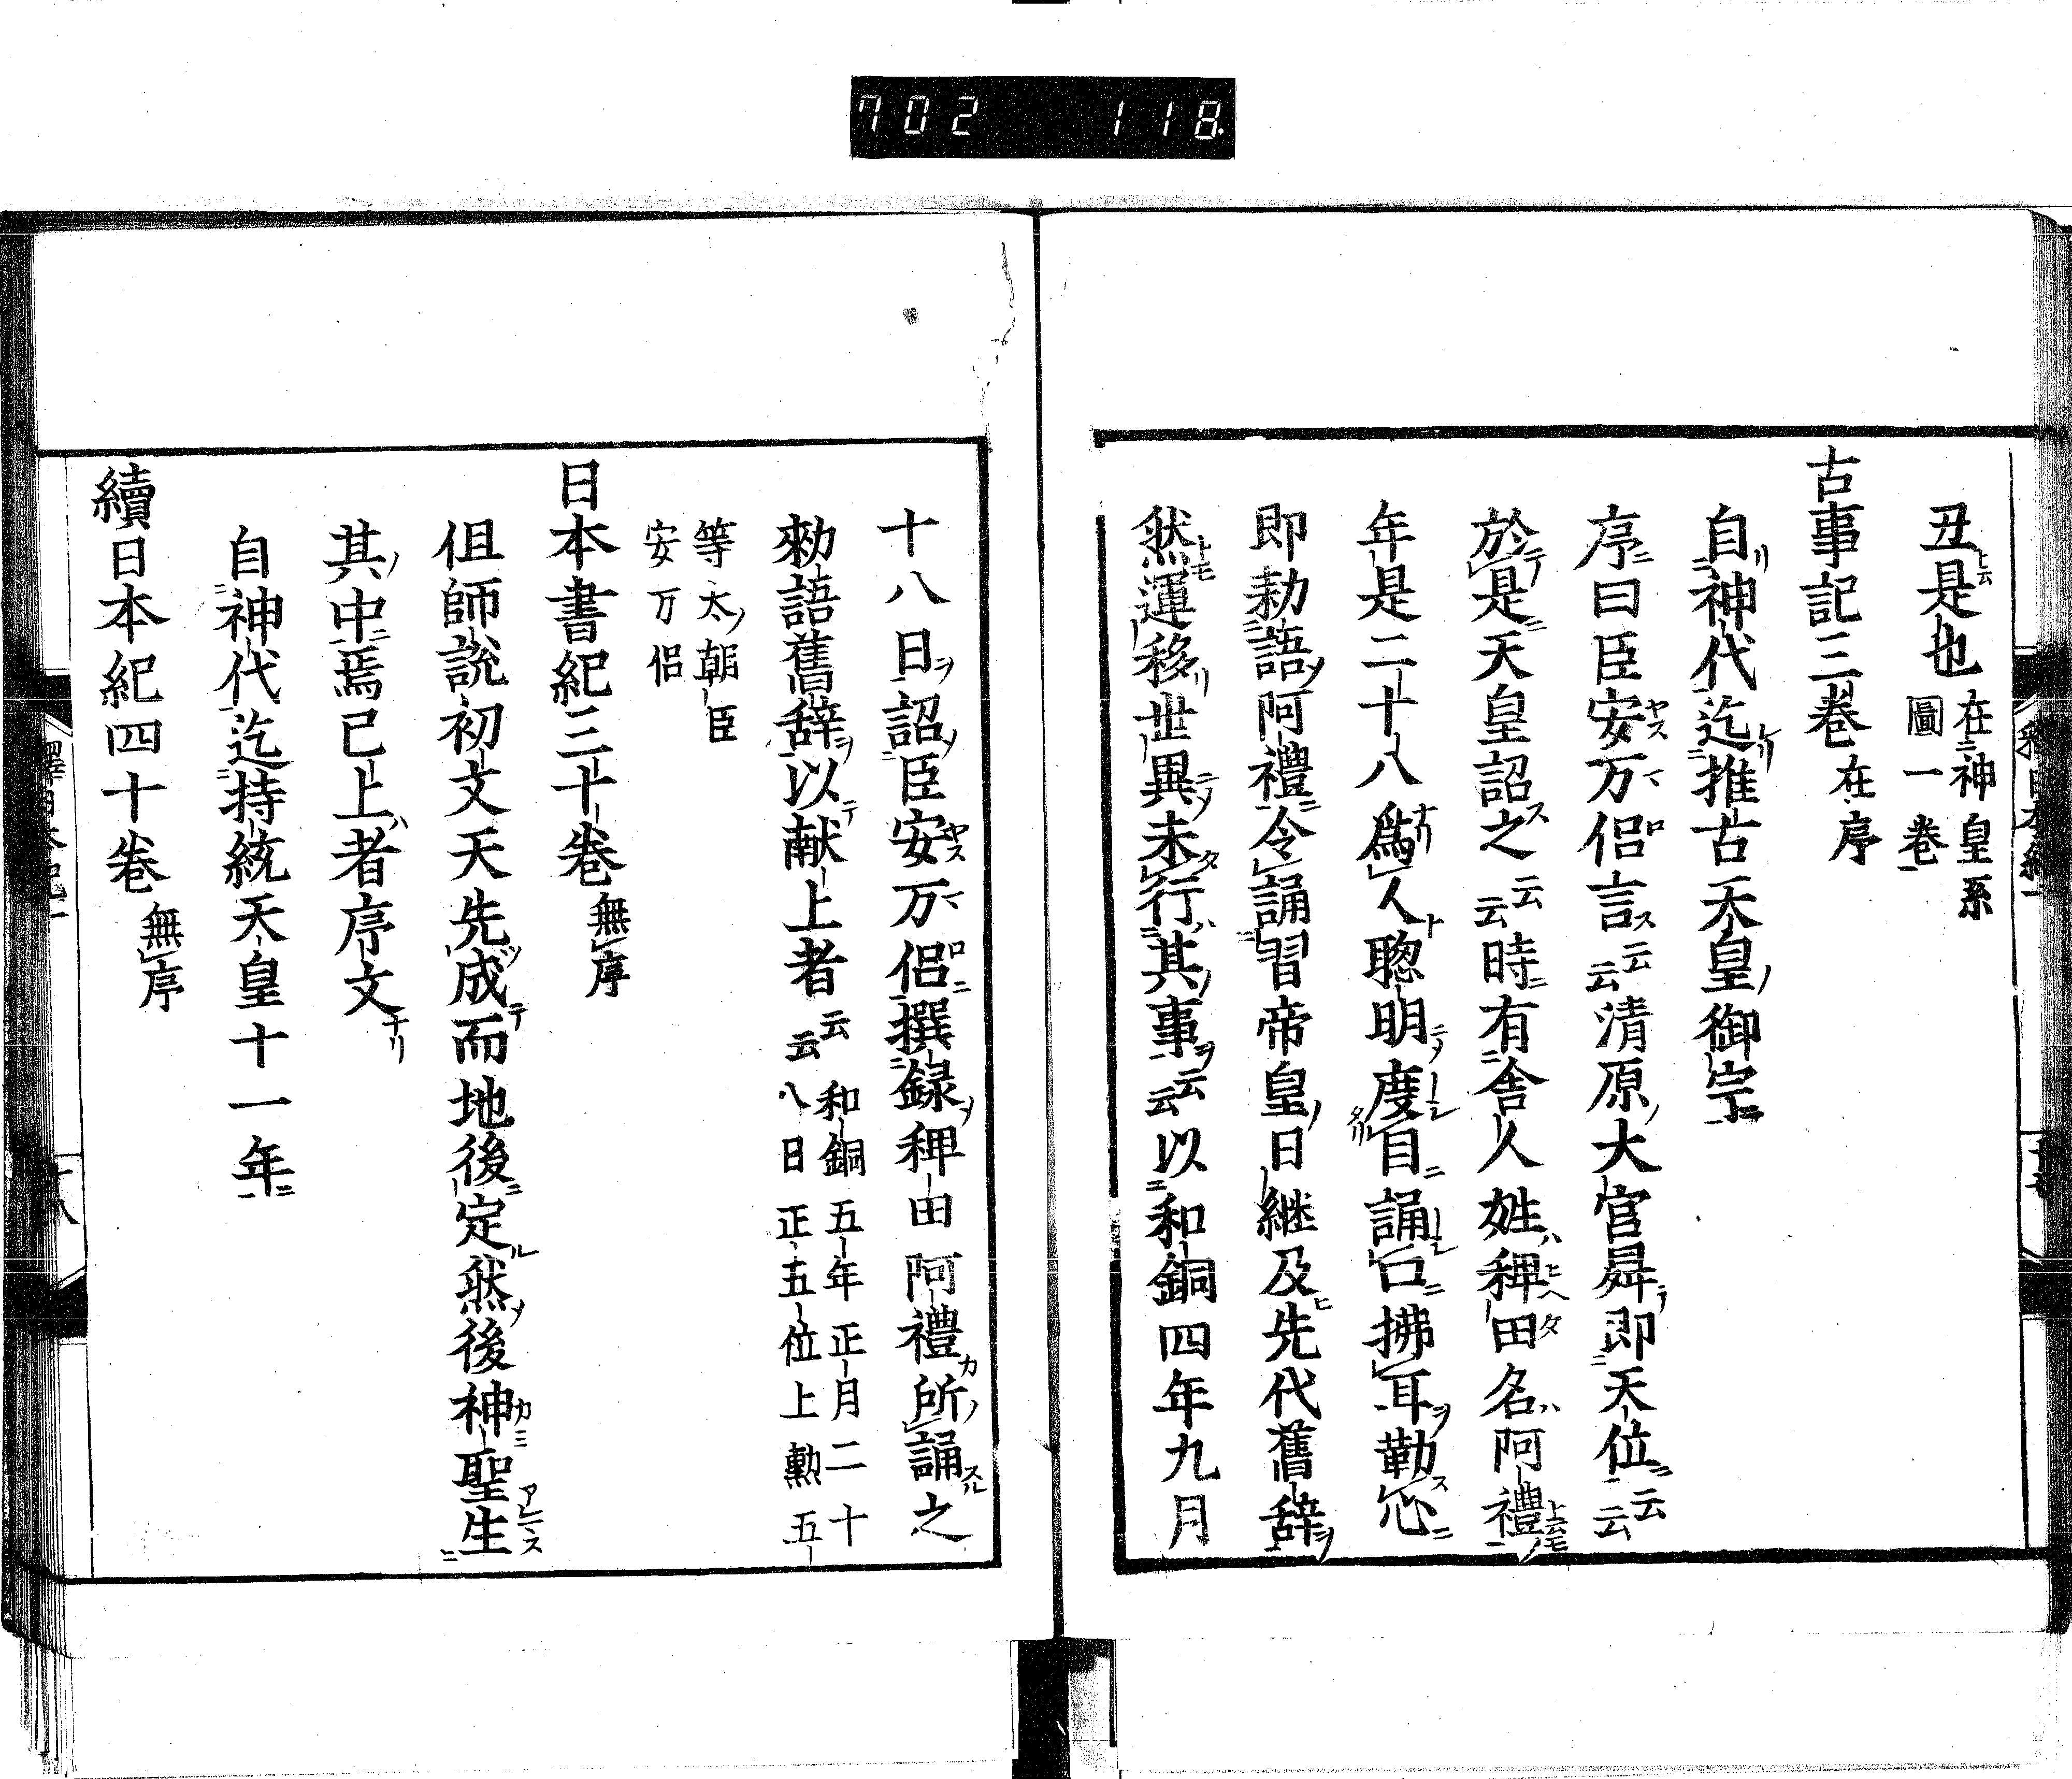 702 118
丑是也 在神皇系
圖一卷
古事記三卷 在序
自神代迄推古天皇御宇
序曰臣安万侶言云云清原大宮昇即天位云云
於是天皇詔之云云時有舎人姓稗田名阿禮
年是二十八爲人聰明度目誦口拂耳勒心
即勅語阿禮令誦習帝皇日継及先代舊辞
然運移世異未行其事云云以和銅四年九月
十八日詔臣安万侶撰録稗田阿禮所誦之
勅語舊辞以献上者云云 和銅五年正月二十
八日正五位上勲五
等太朝臣
安万侶
日本書紀三十卷 無序
但師説初文天先成而地後定然後神聖生
其中焉已上者序文
自神代迄持統天皇十一年
續日本紀四十卷 無序